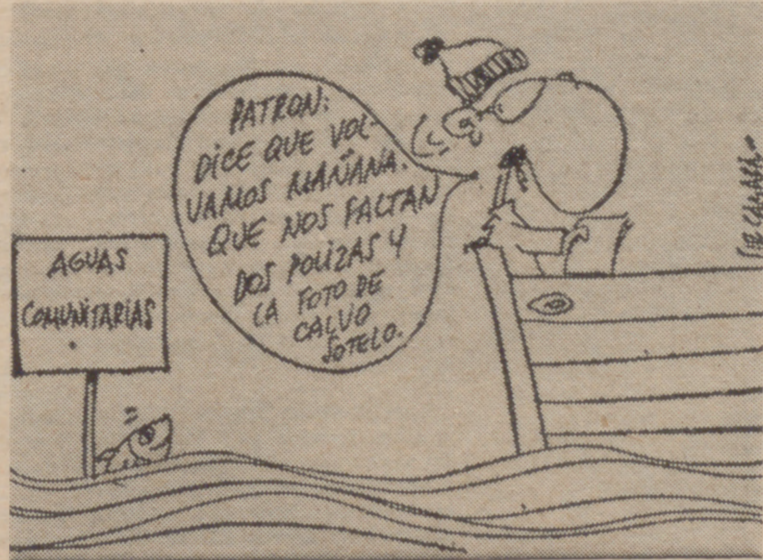 AGUAS
COMUNITARIAS
PATRON:
DICE QUE VOL-
VAMOS MAÑANA.
QUE NOS FALTAN
DOS POLIZAS Y
LA FOTO DE
CALVO
SOTELO.